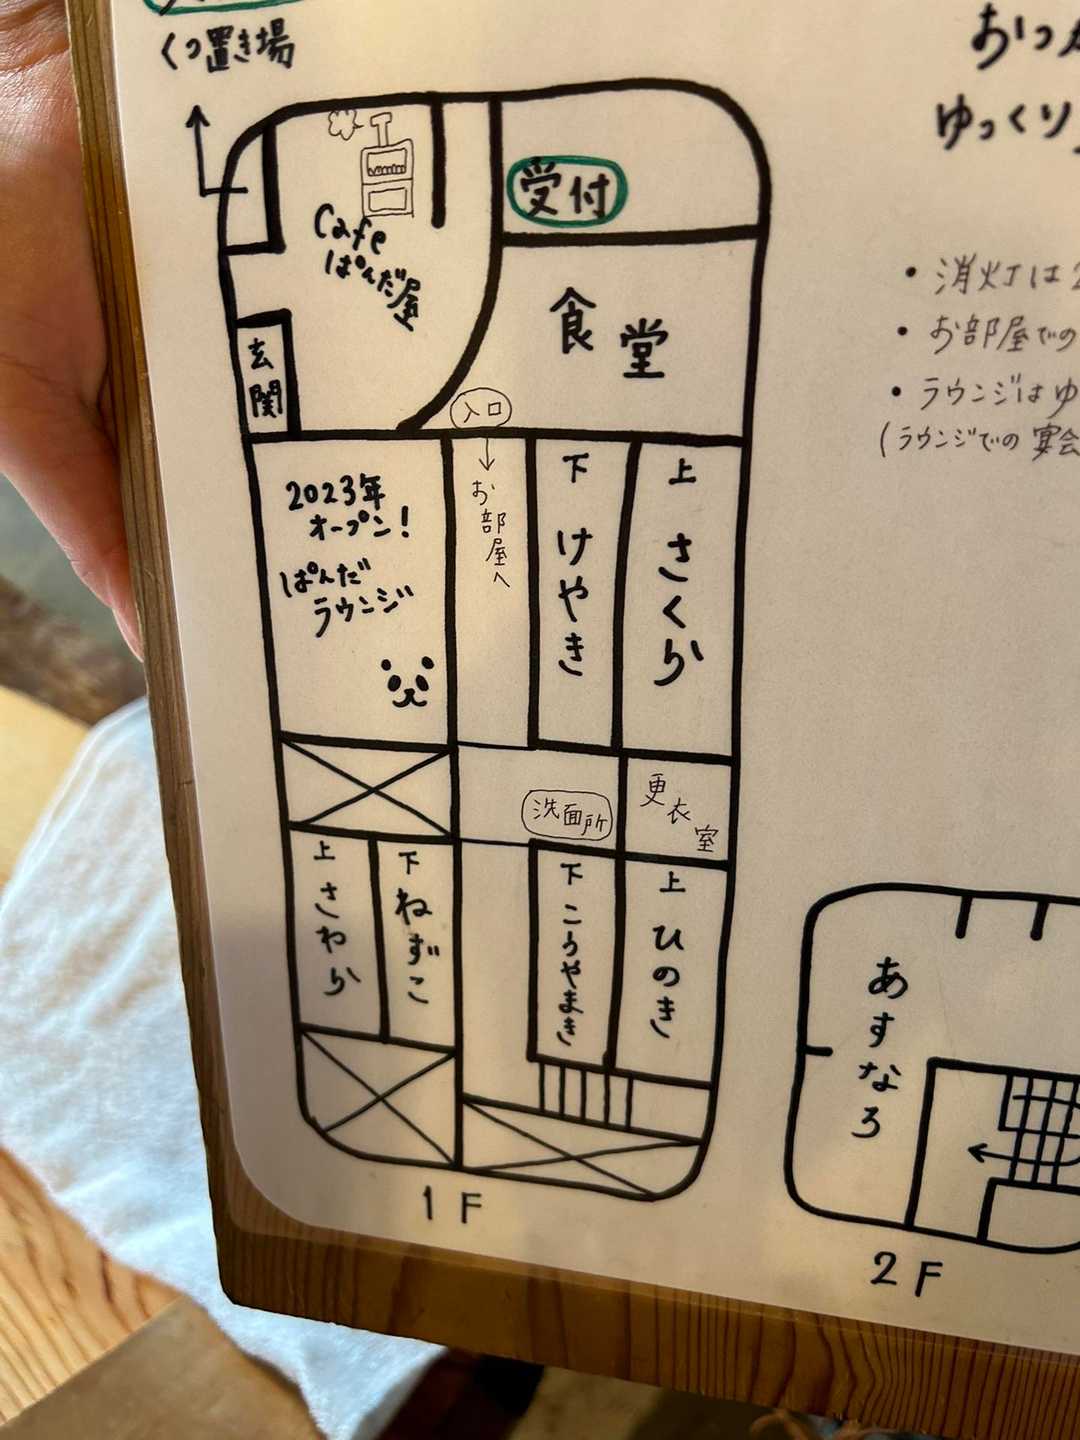 くつ置き場
おつか
ゆっくり
受付
Cafe
ぱんだ屋
食堂
玄関
入口
お部屋へ
2023年
オープン!
ぱんだ
ラウンジ
下 けやき
上 さくら
洗面所
更衣室
上 さわら
下 ねずこ
下 こうやまき
上 ひのき
1F
・消灯は2
・お部屋での
・ラウンジはゆ
(ラウンジでの宴会
あすなろ
2F